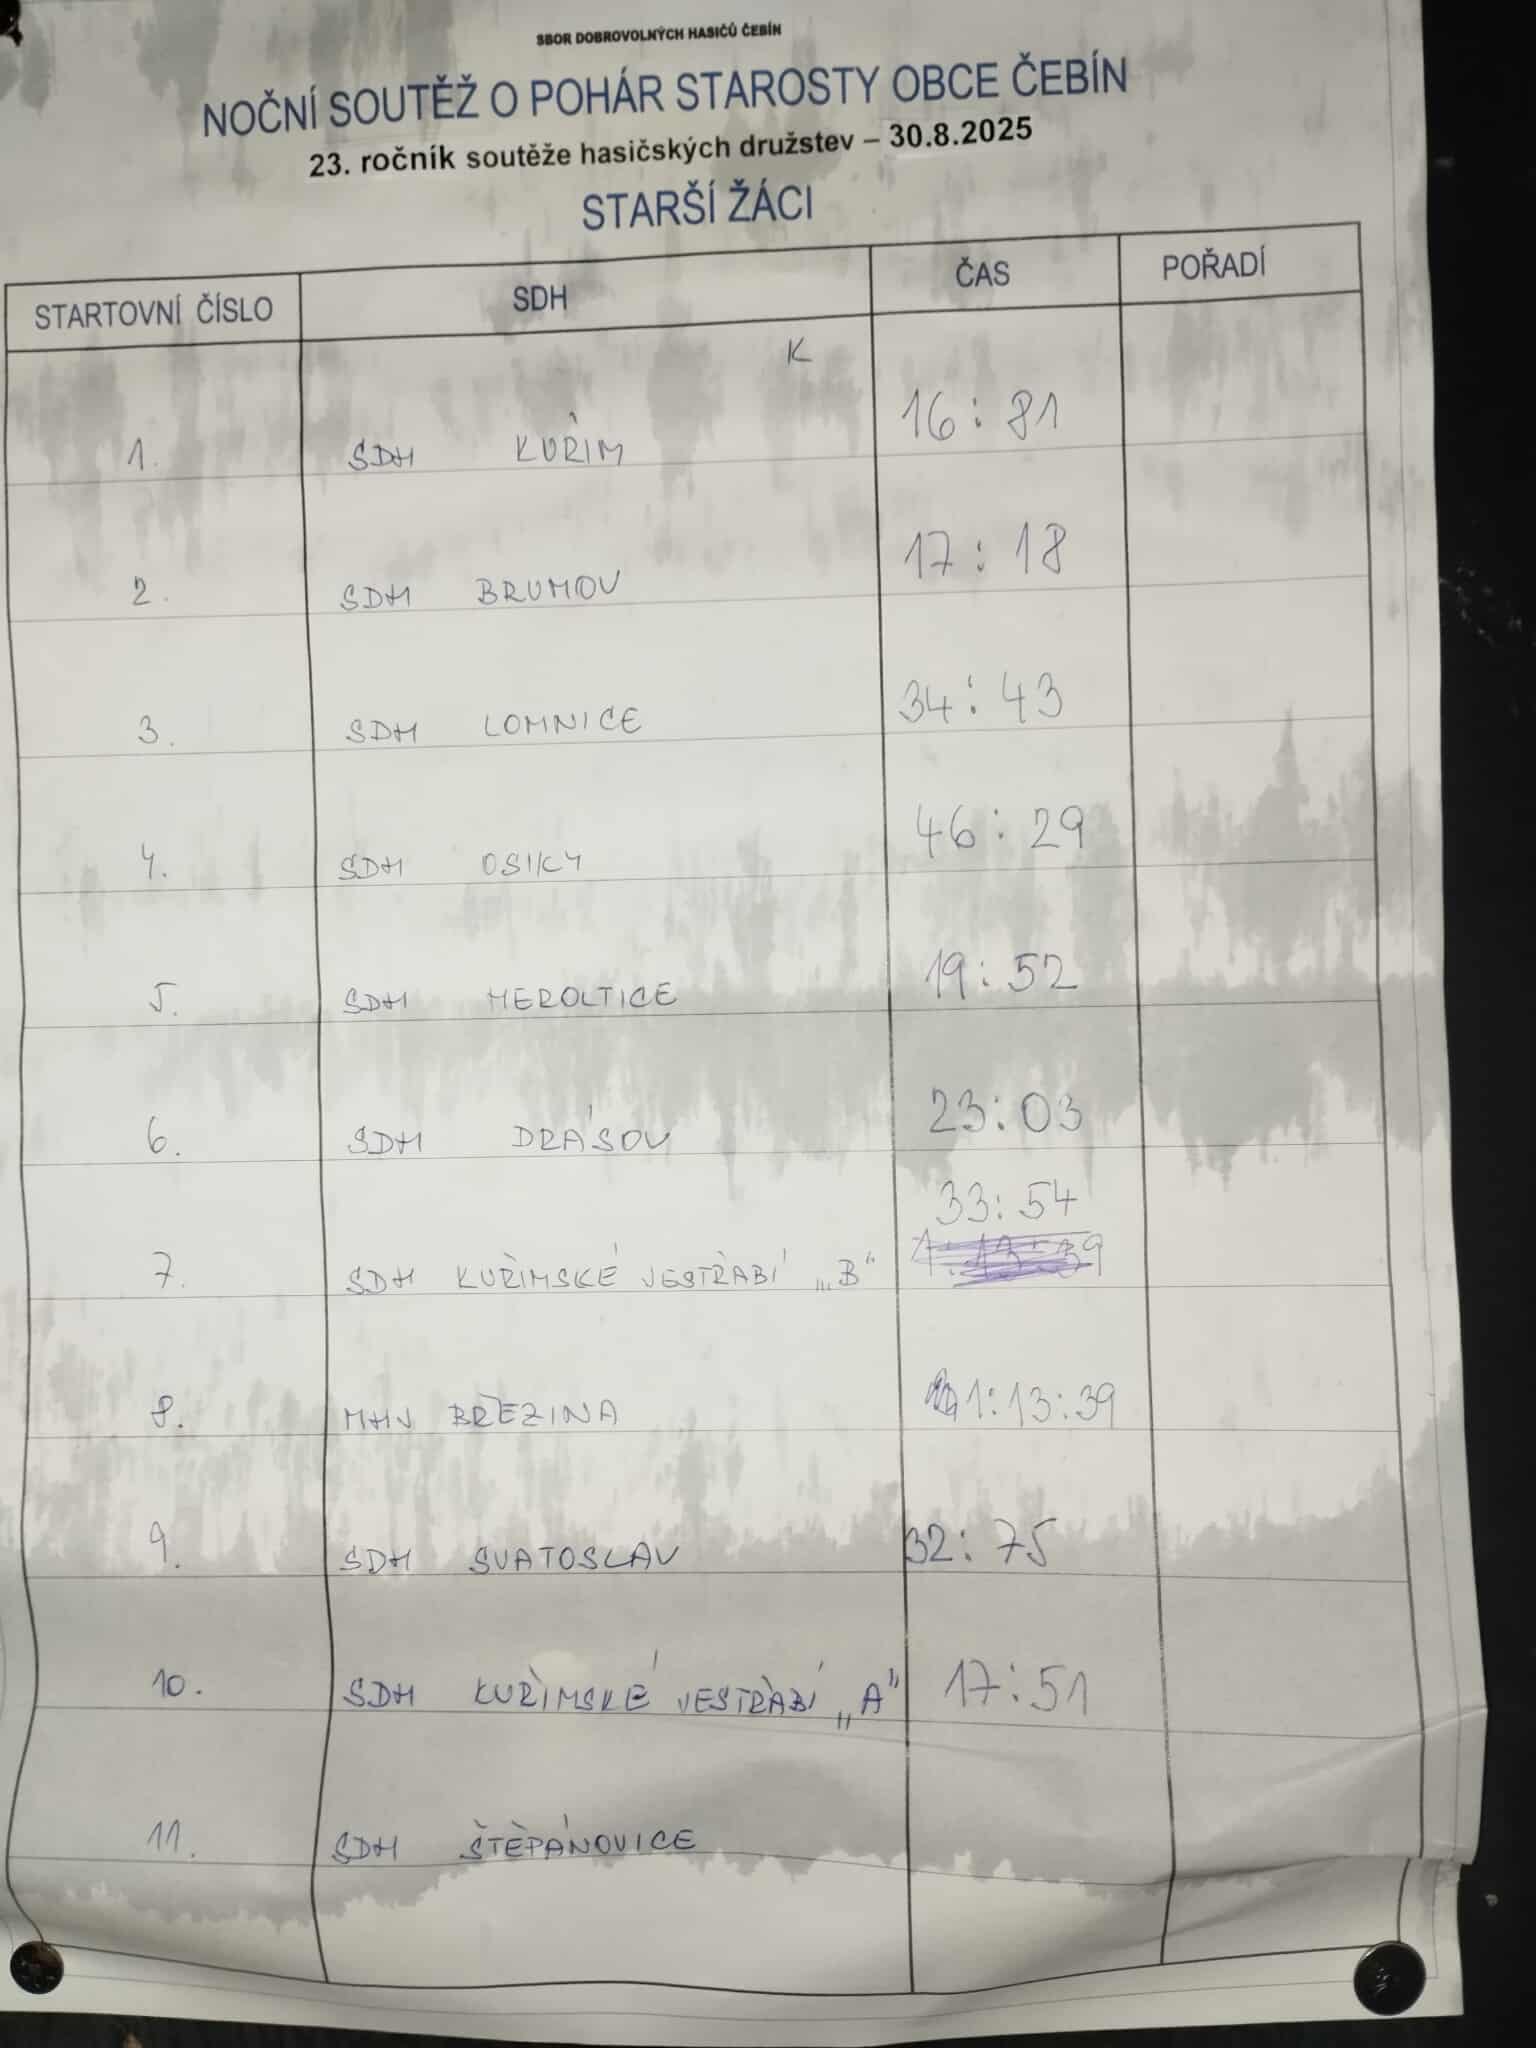 SBOR DOBROVOLNÝCH HASIČŮ ČEBÍN
NOČNÍ SOUTĚŽ O POHÁR STAROSTY OBCE ČEBÍN
23. ročník soutěže hasičských družstev – 30.8.2025
STARŠÍ ŽÁCI
STARTOVNÍ ČÍSLO SDH ČAS POŘADÍ
K
1. SDH KUŘIM 16:81
2. SDH BRUMOV 17:18
3. SDH LOMNICE 34:43
4. SDH OSIKY 46:29
5. SDH HEROLTICE 19:52
6. SDH DRÁSOV 23:03
33:54
7. SDH KUŘIMSKÉ JESTŘÁBÍ „B“ 1:13:39
8. MHJ BŘEZINA 1:13:39
9. SDH SVATOSLAV 32:75
10. SDH KUŘIMSKÉ JESTŘÁBÍ „A" 17:51
11. SDH ŠTĚPÁNOVICE